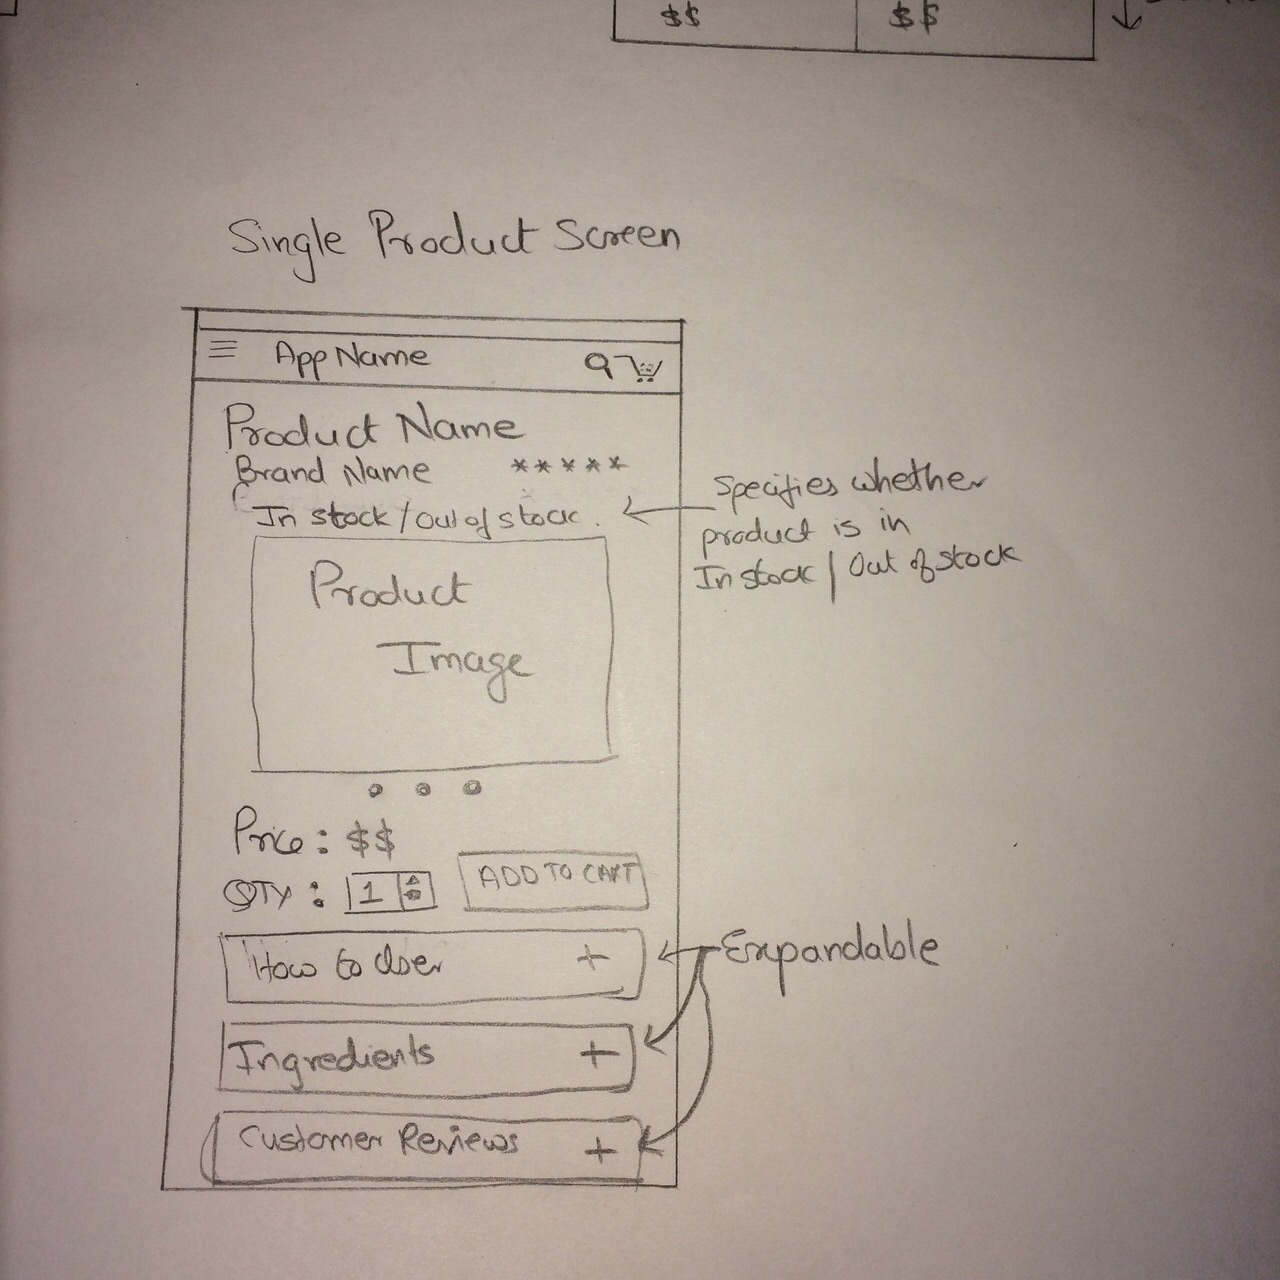 $$ $$
Single Product Screen
App Name
Product Name
Brand Name *****
In stock / out of stock.
Specifies whether
product is in
In stock / Out of stock
Product
Image
Price : $$
QTY : 1 ADD TO CART
How to User +
Expandable
Ingredients +
Customer Reviews +